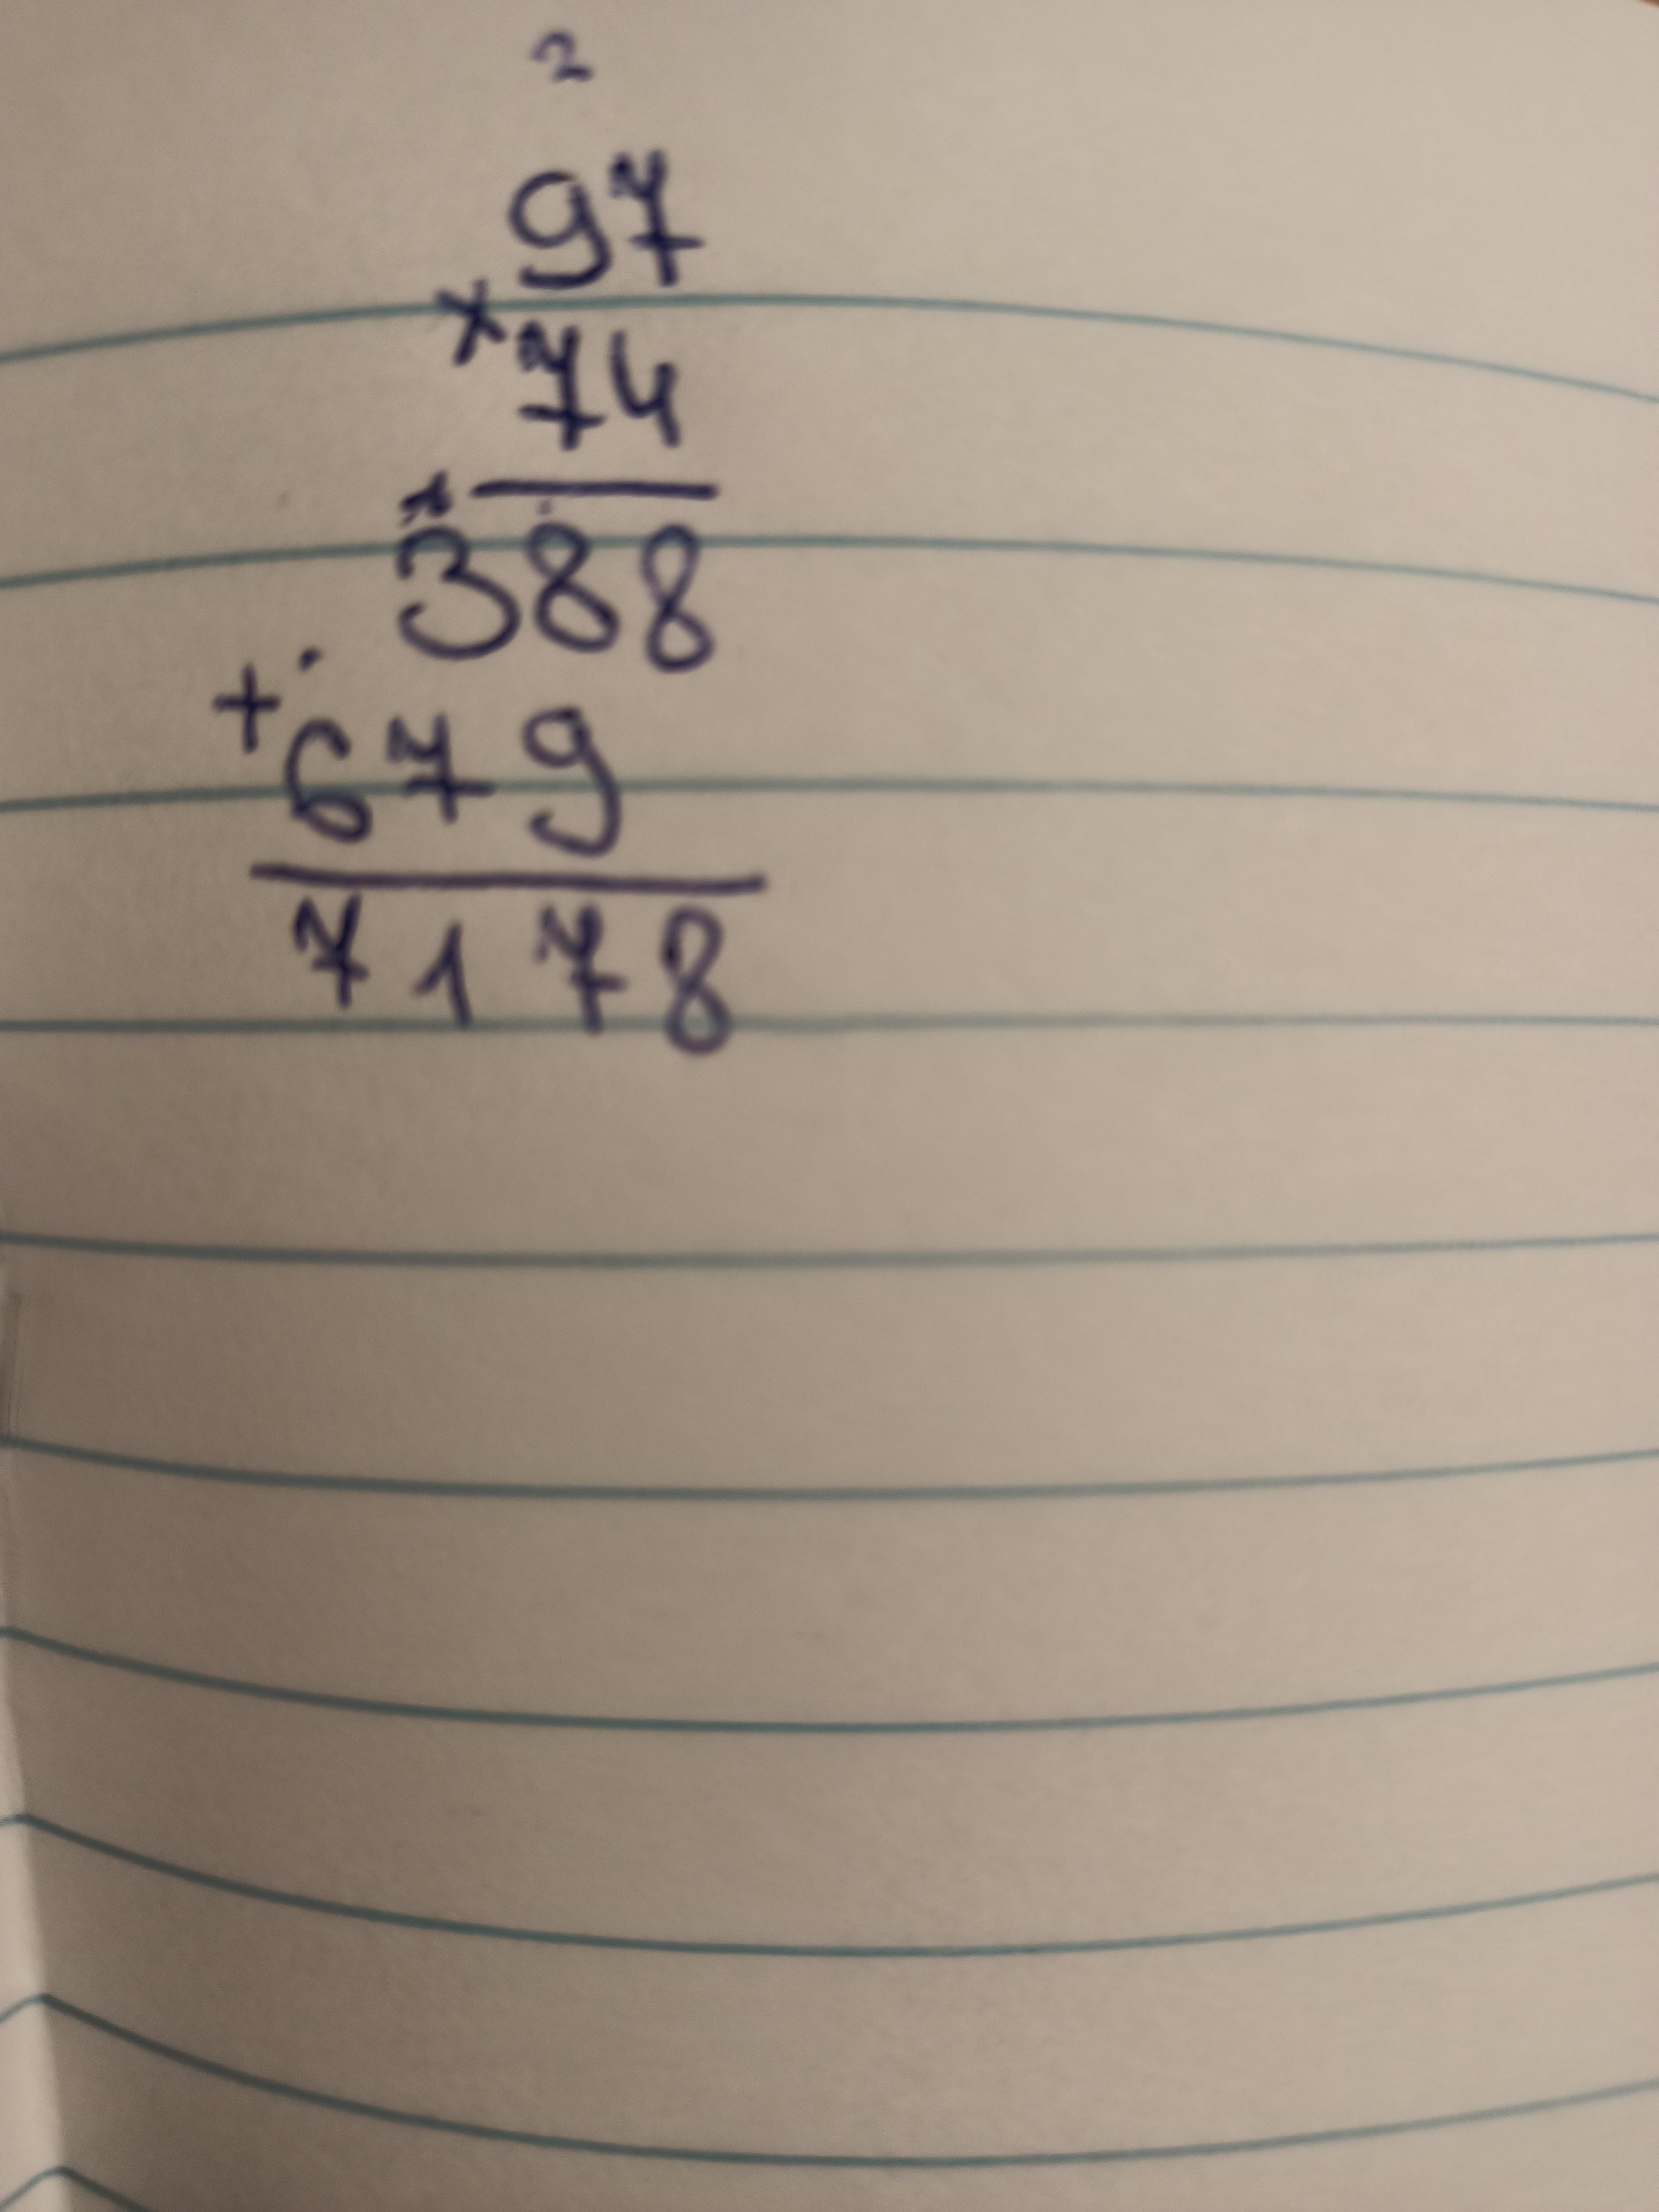 2
97
× 74
388
+ 679
7178